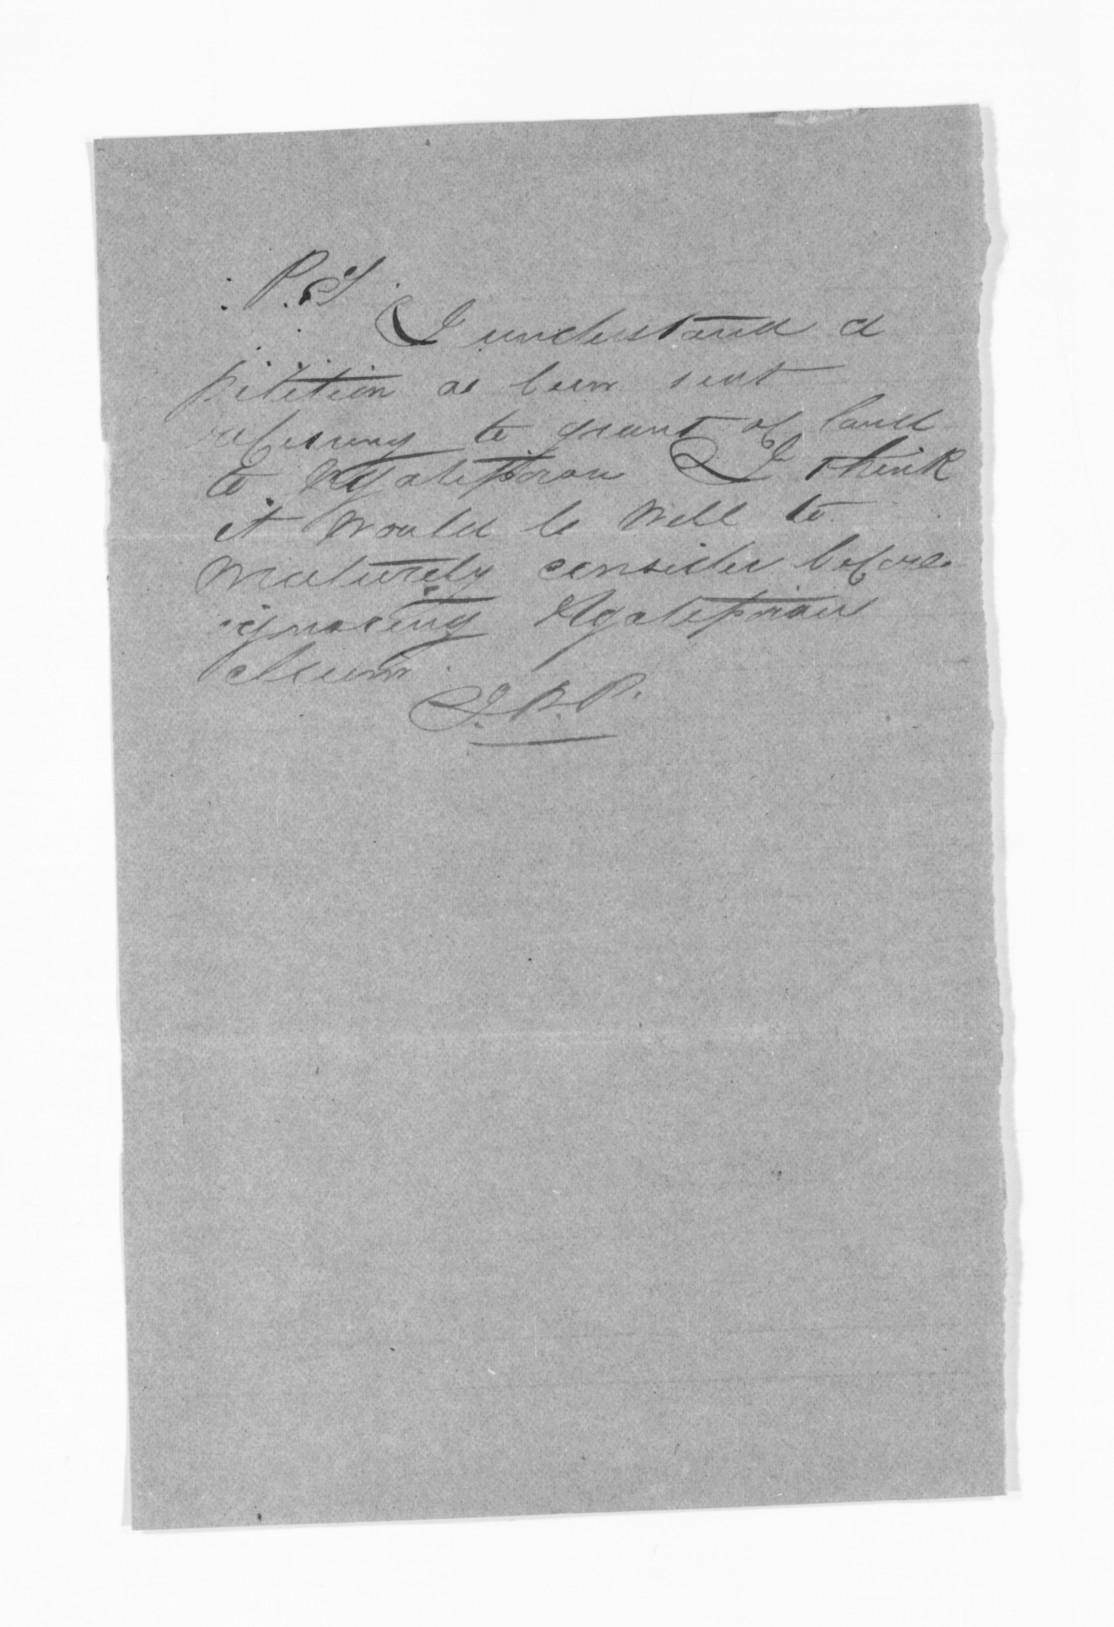 P.S.
I understand a
petition as been sent
refering to grant of land
to Ngatiporou I think
it would be well to
maturely consider before
ignoring Ngatiporous
claim
J.P.P.